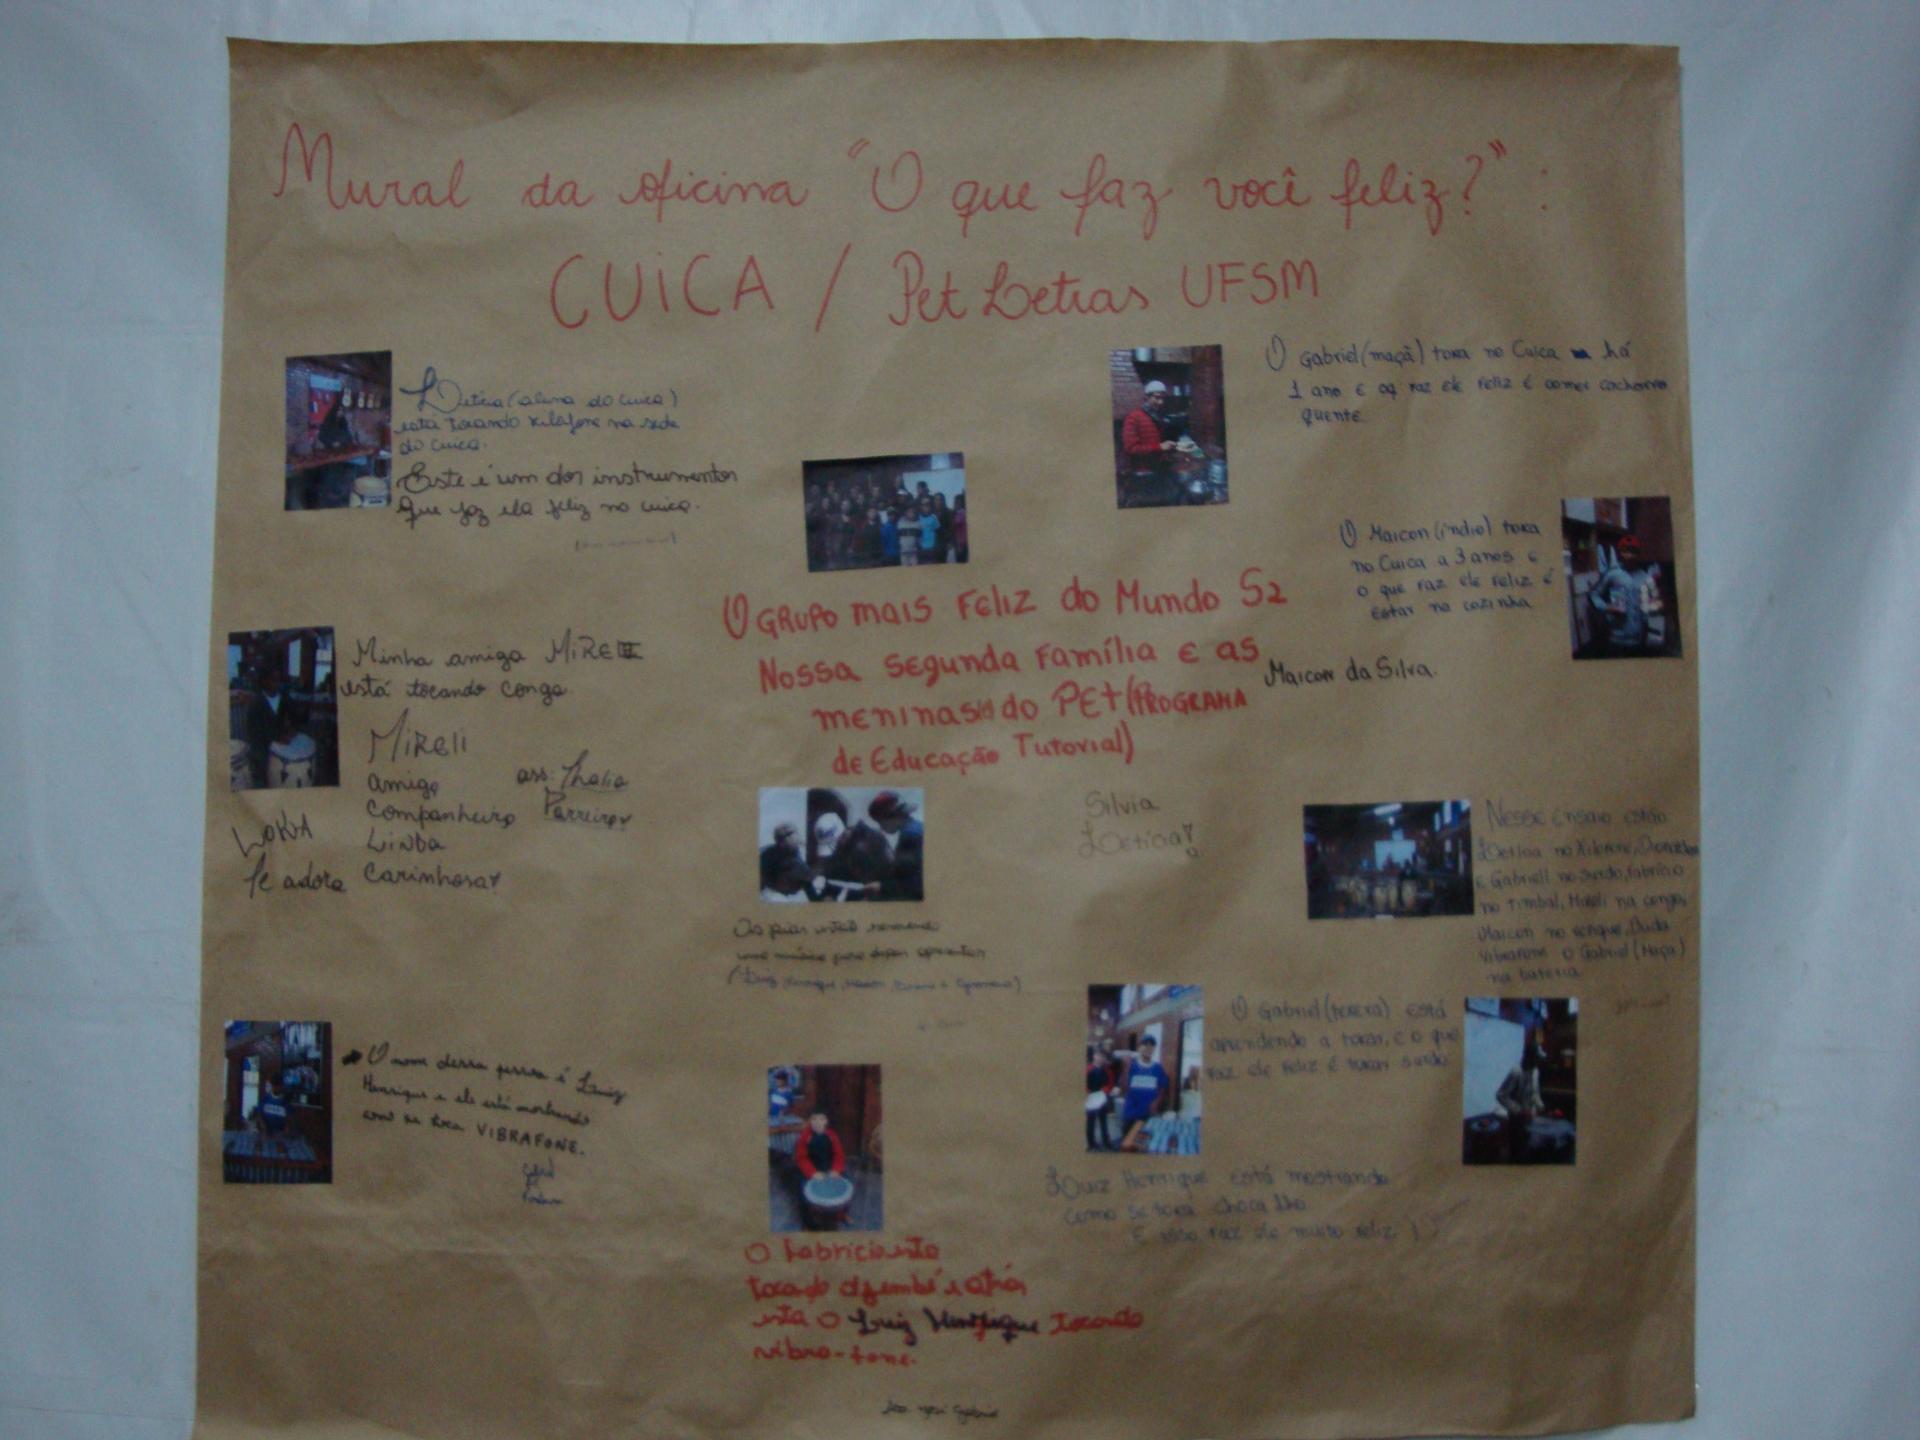 Mural da oficina "O que faz você feliz?":
CUiCA / Pet Letras UFSM
Letícia (aluna do cuica)
está tocando xilofone na sede
do cuica.
Este é um dos instrumentos
que faz ela feliz no cuica.
O Gabriel (maçã) toca no Cuica há
1 ano e oq faz ele feliz é comer cachorro
quente.
O Maicon (índio) toca
no Cuica a 3 anos e
o que faz ele feliz é
estar na cozinha.
Maicon da Silva.
O GRUPO mais Feliz do Mundo S2
Nossa segunda Família e as
meninas do PET (PROGRAMA
de Educação Tutorial)
Minha amiga MiRELI
está tocando conga.
MiReli
amiga
companheira
LiNDA
carinhosa
ass: Thalia
Parreira
LOKA
te adora
Silvia
Letícia
Nesse ensaio estão
Letícia no Xilofone,
e Gabrieli no surdo, Fabrício
no Timbal, Mireli na conga,
Maicon no Duda
vibrafone o Gabriel (Maça)
na bateria
uma música para depois apresentar
O nome dessa pessoa é Luiz
Henrique e ele está mostrando
como se toca VIBRAFONE.
O Gabriel está
aprendendo a tocar, e o que
faz ele feliz é tocar surdo.
Luiz Henrique está mostrando
como se toca chocalho.
E isso faz ele muito feliz :)
O Fabricio esta
tocando djembê e atrás
esta o Luiz Henrique tocando
vibra-fone.